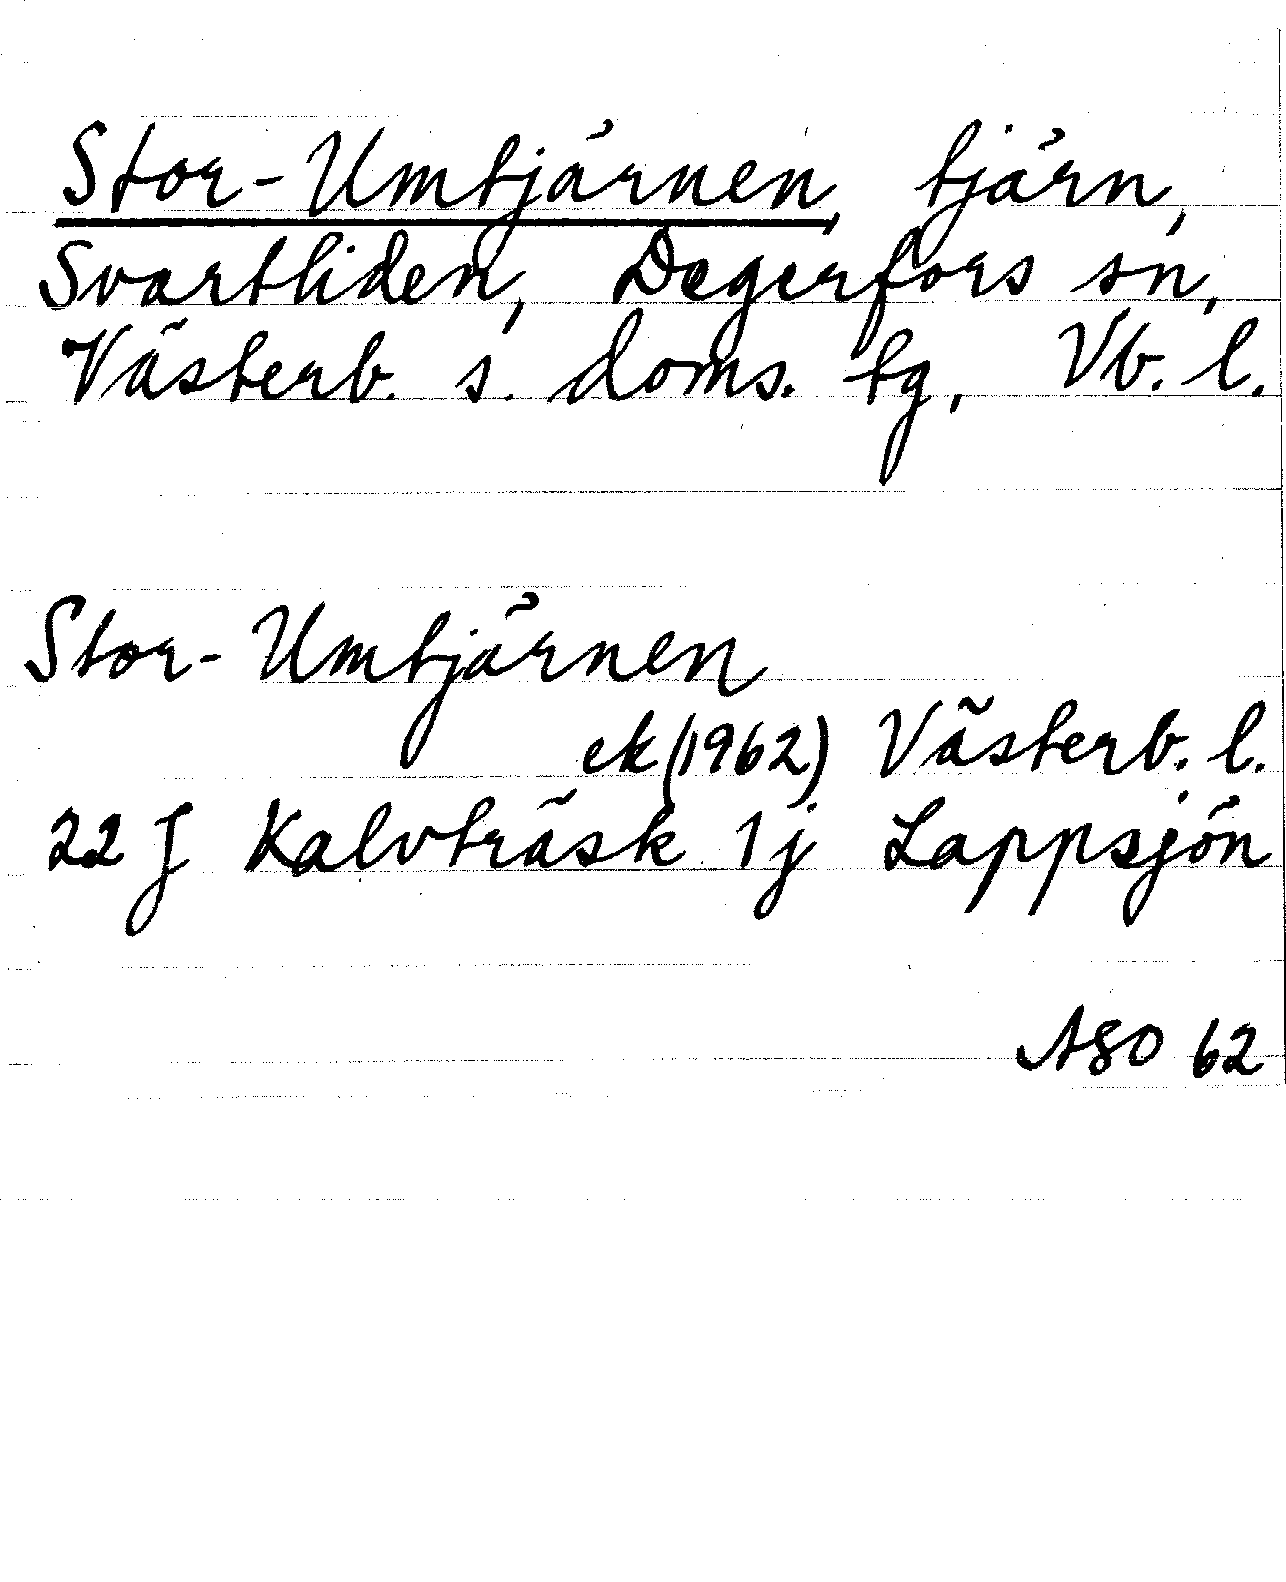 Stor-Umtjärnen, tjärn,
Svartliden, Degerfors sn,
Västerb. s. doms. tg, Vb. l.
Stor-Umtjärnen
ek (1962) Västerb. l.
22 J Kalvträsk 1j Lappsjön
ASO 62